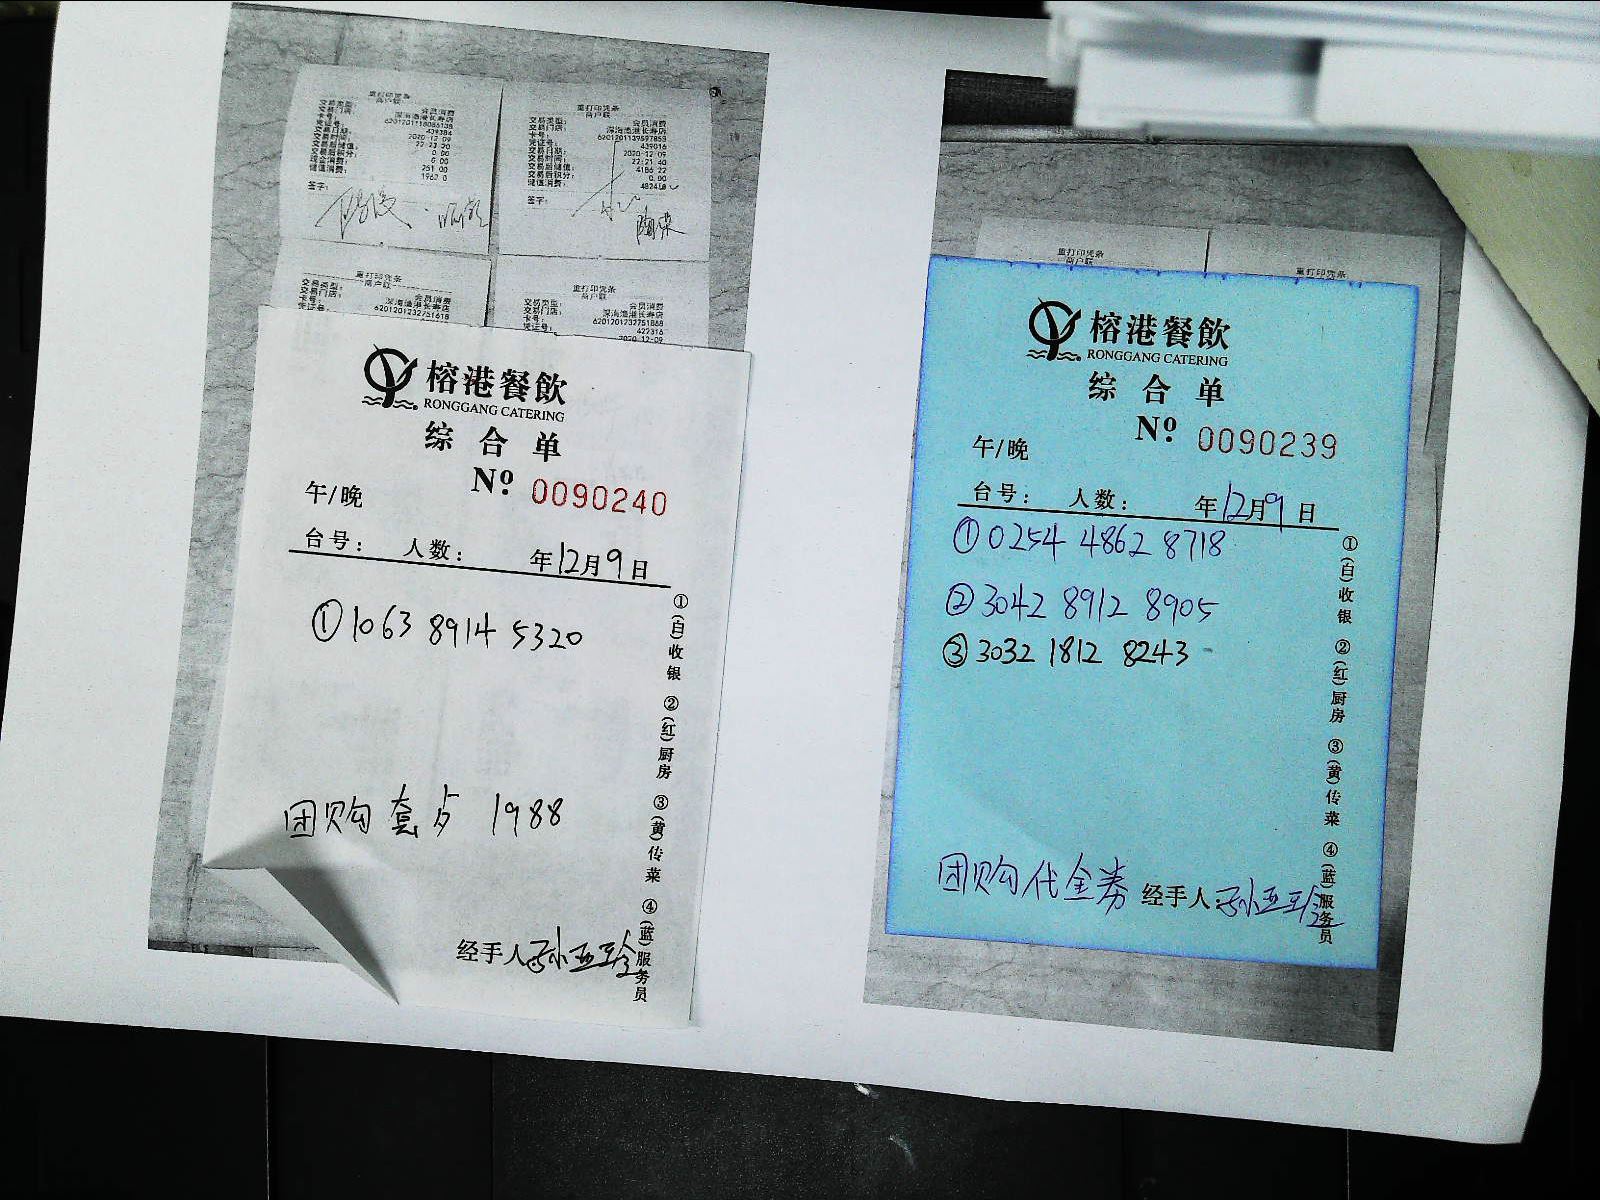 重打印凭条
商户联
交易类型： 会员消费
交易门店： 深海渔港长寿店
卡号：
凭证号： 439384
交易日期： 2020-12-09
交易时间： 22:23:20
0.00
0.00
251.00
签字：
重打印凭条
商户联
交易类型： 会员消费
交易门店： 深海渔港长寿店
卡号： 6201201139597859
凭证号： 439016
交易日期： 2020-12-09
交易时间： 22:21:40
交易后储值： 4186.22
交易后积分： 0.00
储值消费：
签字：
重打印凭条
商户联
交易类型： 会员消费
交易门店： 深海渔港长寿店
卡号： 6201201232751618
凭证号：
重打印凭条
商户联
交易类型： 会员消费
交易门店： 深海渔港长寿店
卡号： 6201201232751868
凭证号： 422316
2020-12-09
榕港餐飲
RONGGANG CATERING
综合单
Nº 0090240
午/晚
台号： 人数： 年12月9日
①1063 8914 5320
团购套点 1988
经手人：孙亚玲
①(白)收银 ②(红)厨房 ③(黄)传菜 ④(蓝)服务员
重打印凭条
商户联
重打印凭条
榕港餐飲
RONGGANG CATERING
综合单
Nº 0090239
午/晚
台号： 人数： 年12月9日
①0254 4862 8718
②3042 8912 8905
③3032 1812 8243
团购代金券 经手人：孙亚玲
①(白)收银 ②(红)厨房 ③(黄)传菜 ④(蓝)服务员